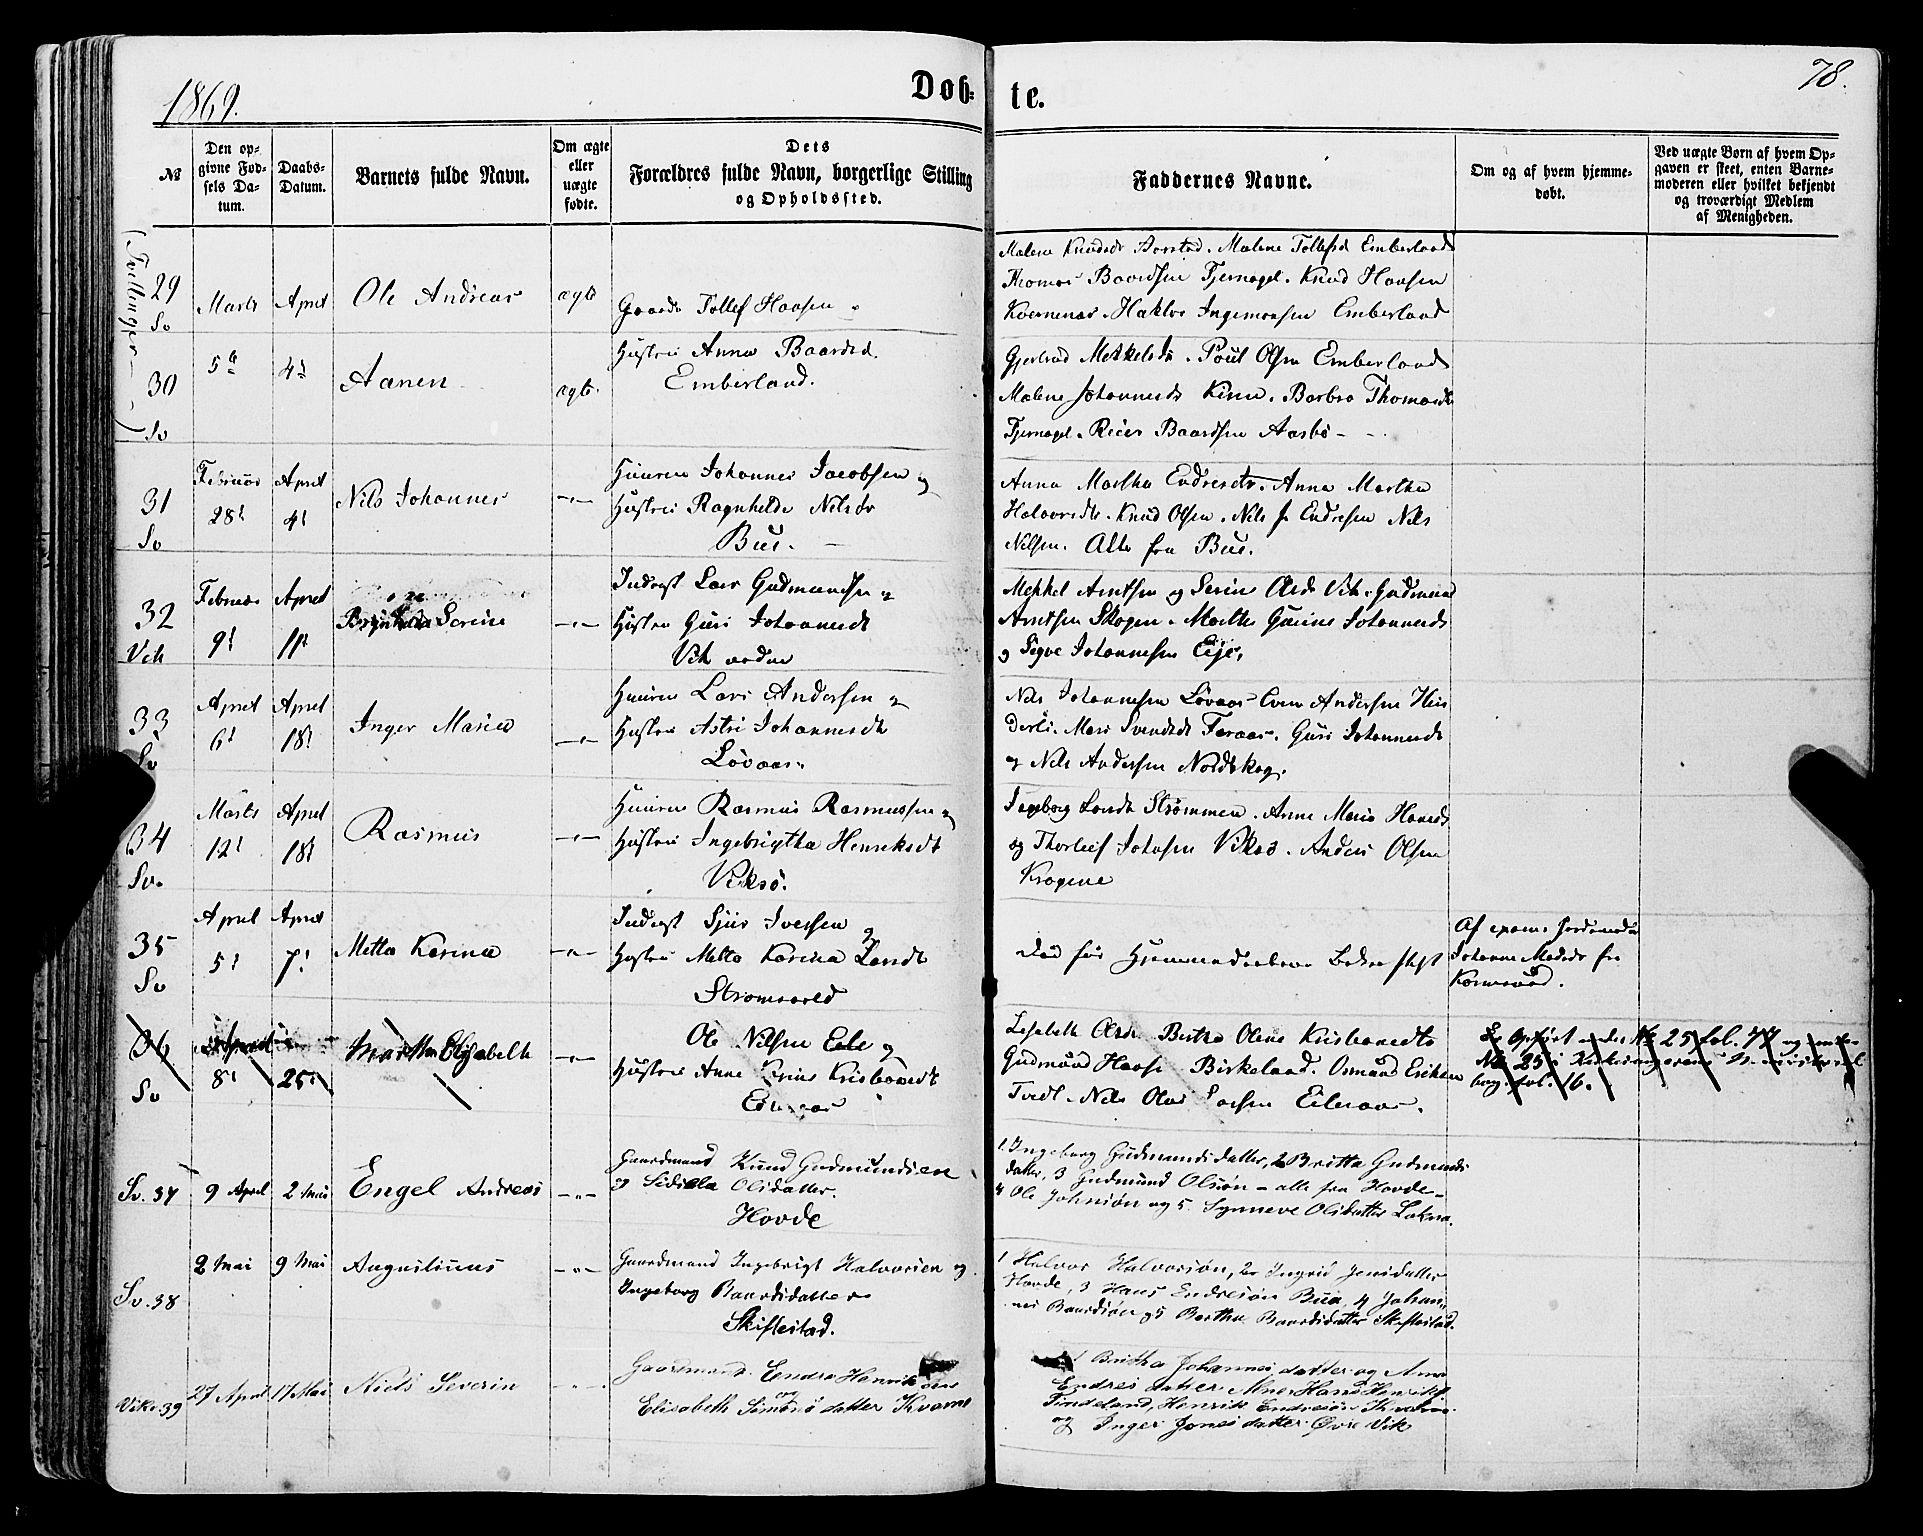 1869.
Døb-
te.
78.
№
Den op-
givne Fød-
sels Da-
tum.
Daabs-
Datum.
Barnets fulde Navn.
Om ægte
eller
uægte
fødte.
Dets
Forældres fulde Navn, borgerlige Stilling
og Opholdssted.
Faddernes Navne.
Om og af hvem hjemme-
døbt.
Ved uægte Børn af hvem Op-
gaven er skeet, enten Barne-
moderen eller hvilket bekjendt
og troværdigt Medlem
af Menigheden.
(Tvillinger)
29
Sv
Marts
5
April
4
Ole Andreas
ægte
Gaardm Tollef Haavsen
Hustru Anna Baardsd.
Emberland.
Malene Knudsdr Aarstad. Malene Tollefsd Emberland
Thomas Baardsen Tjernagel. Knud Haavsen
Kvernenas. Haktor Ingemansen Emberland
30
Sv
Aanen
ægte.
Gjertrud Mekkelsdr. Poul Olsen Emberland
Malene Johannesdr Kinn. Barbro Thomasdr
Tjernagel. Reier Baardsen Aarbø
31
Sv
Februar
28
April
4
Nils Johannes
-"-
Huusm Johannes Jacobsen og
Hustru Ragnhilde Nilsdr
Bue.
Anna Martha Endresdtr. Anna Martha
Halvorsdtr. Knud Olsen. Nils J. Endresen Nils
Nilsen. Alle fra Bue.
32
Vik
Februar
9
April
11
Serine
-"-
Inderst Lars Gudmundsen og
Hustru Guri Johannesdr
Vik
Mekkel Arntsen og Serine Olsdr Vik. Gudmund
Arntsen Skogen. Marthe Gurine Johannesdr
og Sigve Johannesen Eije.
33
Sv
April
6
April
18
Inger Maria
-"-
Huusm Lars Andersen og
Hustru Astri Johannesdr
Løvaas.
Nils Johannesen Løvaas Even Andersen Hin
derli. Mari Svendsdr Foraas. Guri Johannesdr
og Nils Andersen Nordskog.
34
Sv.
Marts
12
April
18
Rasmus
-"-
Huusm Rasmus Rasmussen og
Hustru Ingebrigtha Henriksdr
Viksø.
Ingeborg Larsdr Strømmen. Anne Maria Hansdr
og Thorleif Johnsen Viksø. Anders Olsen
Krogene
35
Sv
April
5
April
7
Metta Karina
-"-
Inderst Sjur Iversen og
Hustru Metta Karina Larsdr
Strømvold
Død før Hjemmedaabens Bekræftelse
Af exam. Jordmoder
Johanne Madsdr fra
36
Sv
April
8
25
Martha Elisabeth
-"-
Ole Nilsen Eele og
Hustru Anne Serine Kristoansdr
Lisabeth Olsdr Bertha Oline Kristoansdtr
Gudmund Haavs. Birkeland. Osmund Eriksen
Tvedt. Nils Olai Larsen Eileraas.
Er opført under No 25 fol. 77 og under
No 25
fol. 16.
Sv. 37
9 April
2 Mai
Engel Andreas
-"-
Gaardmand Knud Gudmundsen
og Sidsela Olsdatter.
Hovde
1 Ingeborg Gudmundsdatter, 2 Britta Gudmunds
datter, 3 Gudmund Olsøn - alle fra Hovde -
4 Ole Johnsøn og 5. Synneve Olsdatter Lakna.
Sv. 38
2 Mai
9 Mai
Augustinus
-"-
Gaardmand Ingebrigt Halvorsen og
Ingeborg Baardsdatter
Skiftestad.
1 Halvor Halvorsøn, 2 Ingrid Jensdatter
Hovde, 3 Hans Endresøn Bua, 4 Johan-
nes Baardsøn og 5 Berthe Baardsdatter Skiftestad.
Vikø. 39
27 April
17 Mai
Niels Severin
-"-
Gaardmand Endre Henriksøn
og
Elisabeth Simonsdatter Kvame
Britha Johannesdatter og Anna
Endresdatter. Hans Henriksøn
Tindeland, Henrik Endresøn Kvame
og Inger Jonesdatter Øvre Vik